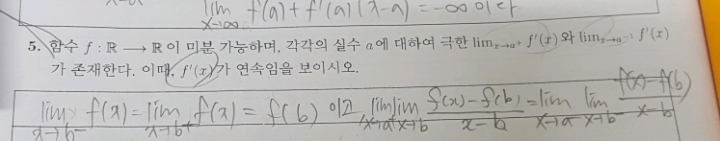 lim x→∞ f(a)+f'(a)(x-a) = -∞ 이다
5. 함수 f : ℝ ⟶ ℝ이 미분 가능하며, 각각의 실수 a에 대하여 극한 lim_{x→a⁺} f'(x)와 lim_{x→a⁻} f'(x)
가 존재한다. 이때, f'(x)가 연속임을 보이시오.
lim x→b⁻ f(x) = lim x→b⁺ f(x) = f(b) 이고, lim x→a⁺ lim x→b (f(x)-f(b))/(x-b) = lim x→a⁻ lim x→b (f(x)-f(b))/(x-b)